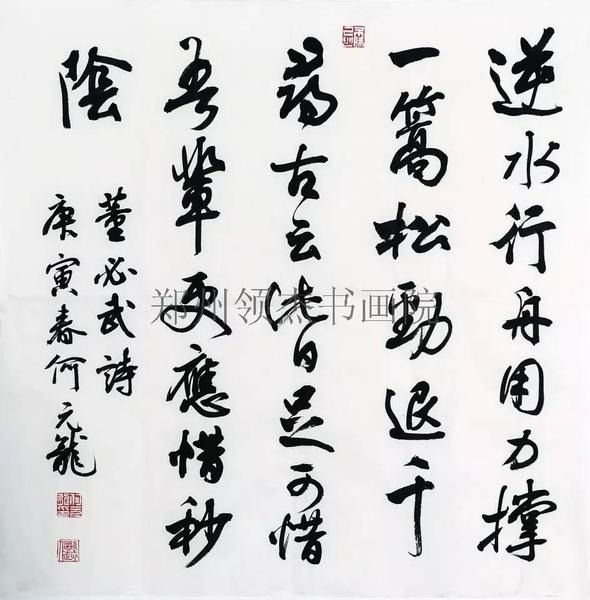 逆水行舟用力撑
一篙松勁退千
尋古云此日足可惜
吾輩更應惜秒
陰
董必武詩
庚寅春何元龍
郑州领杰书画院